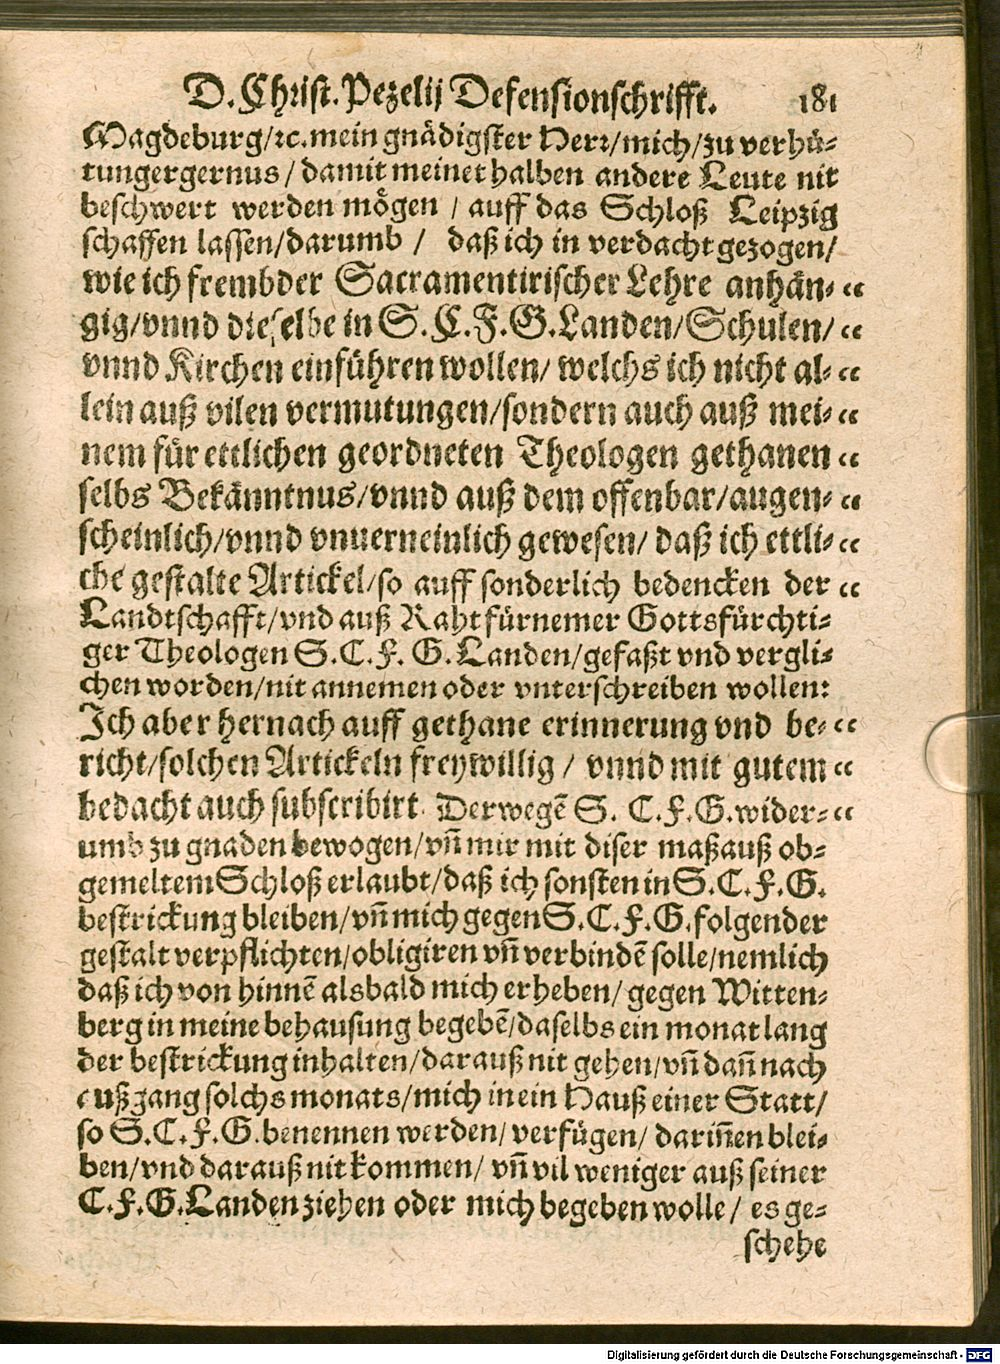 D. Christ. Pezelij Defensionschrifft. 181
Magdeburg/ꝛc. mein gnädigster Herr/mich/zu verhü⸗
tung ergernus/damit meinet halben andere Leute nit
beschwert werden mögen / auff das Schloß Leipzig
schaffen lassen/darumb / daß ich in verdacht gezogen/
wie ich frembder Sacramentirischer Lehre anhän⸗ “
gig/vnnd dieselbe in S. C. F. G. Landen/Schulen/ “
vnnd Kirchen einführen wollen/ welchs ich nicht al⸗ “
lein auß vilen vermutungen/sondern auch auß mei⸗ “
nem für ettlichen geordneten Theologen gethanen “
selbs Bekänntnus/vnnd auß dem offenbar/augen⸗ “
scheinlich/vnnd vnuerneinlich gewesen/ daß ich ettli⸗ “
che gestalte Artickel/so auff sonderlich bedencken der “
Landtschafft/vnd auß Raht fürnemer Gottsfürchti⸗
ger Theologen S. C. F. G. Landen/gefaßt vnd vergli⸗
chen worden/nit annemen oder vnterschreiben wollen:
Ich aber hernach auff gethane erinnerung vnd be⸗ “
richt/solchen Artickeln freywillig / vnnd mit gutem “
bedacht auch subscribirt. Derwegē S. C. F. G. wider⸗ “
umb zu gnaden bewogen/vn̄ mir mit diser maß auß ob⸗
gemeltem Schloß erlaubt/daß ich sonsten in S. C. F. G.
bestrickung bleiben/vn̄ mich gegen S. C. F. G. folgender
gestalt verpflichten/obligiren vn̄ verbindē solle/nemlich
daß ich von hinnē alsbald mich erheben/ gegen Witten⸗
berg in meine behausung begebē/daselbs ein monat lang
der bestrickung inhalten/darauß nit gehen/vn̄ dan̄ nach
außgang solchs monats/mich in ein Hauß einer Statt/
so S. C. F. G. benennen werden/ verfügen/ darin̄en blei⸗
ben/vnd darauß nit kommen/ vn̄ vil weniger auß seiner
C. F. G. Landen ziehen oder mich begeben wolle/ es ge⸗
schehe
Digitalisierung gefördert durch die Deutsche Forschungsgemeinschaft - DFG